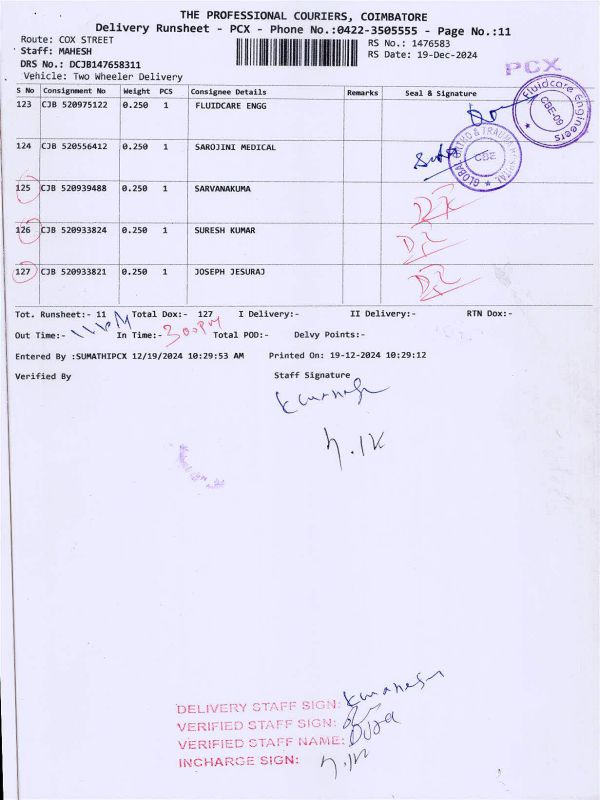 THE PROFESSIONAL COURIERS, COIMBATORE
Delivery Runsheet - PCX - Phone No.:0422-3505555 - Page No.:11
Route: COX STREET
RS No.: 1476583
Staff: MAHESH
RS Date: 19-Dec-2024
DRS No.: DCJB147658311
PCX
Vehicle: Two Wheeler Delivery
S No Consignment No Weight PCS Consignee Details Remarks Seal & Signature
123 CJB 520975122 0.250 1 FLUIDCARE ENGG
Fluidcare Engineers CBE-09
124 CJB 520556412 0.250 1 SAROJINI MEDICAL
GLOBAL ORTHO & TRAUMA HOSPITAL CBE
125 CJB 520939488 0.250 1 SARVANAKUMA
126 CJB 520933824 0.250 1 SURESH KUMAR
127 CJB 520933821 0.250 1 JOSEPH JESURAJ
Tot. Runsheet:- 11 Total Dox:- 127 I Delivery:- II Delivery:- RTN Dox:-
Out Time:- In Time:- 3.00PM Total POD:- Delvy Points:-
Entered By :SUMATHIPCX 12/19/2024 10:29:53 AM Printed On: 19-12-2024 10:29:12
Verified By Staff Signature
DELIVERY STAFF SIGN:
VERIFIED STAFF SIGN:
VERIFIED STAFF NAME:
INCHARGE SIGN: